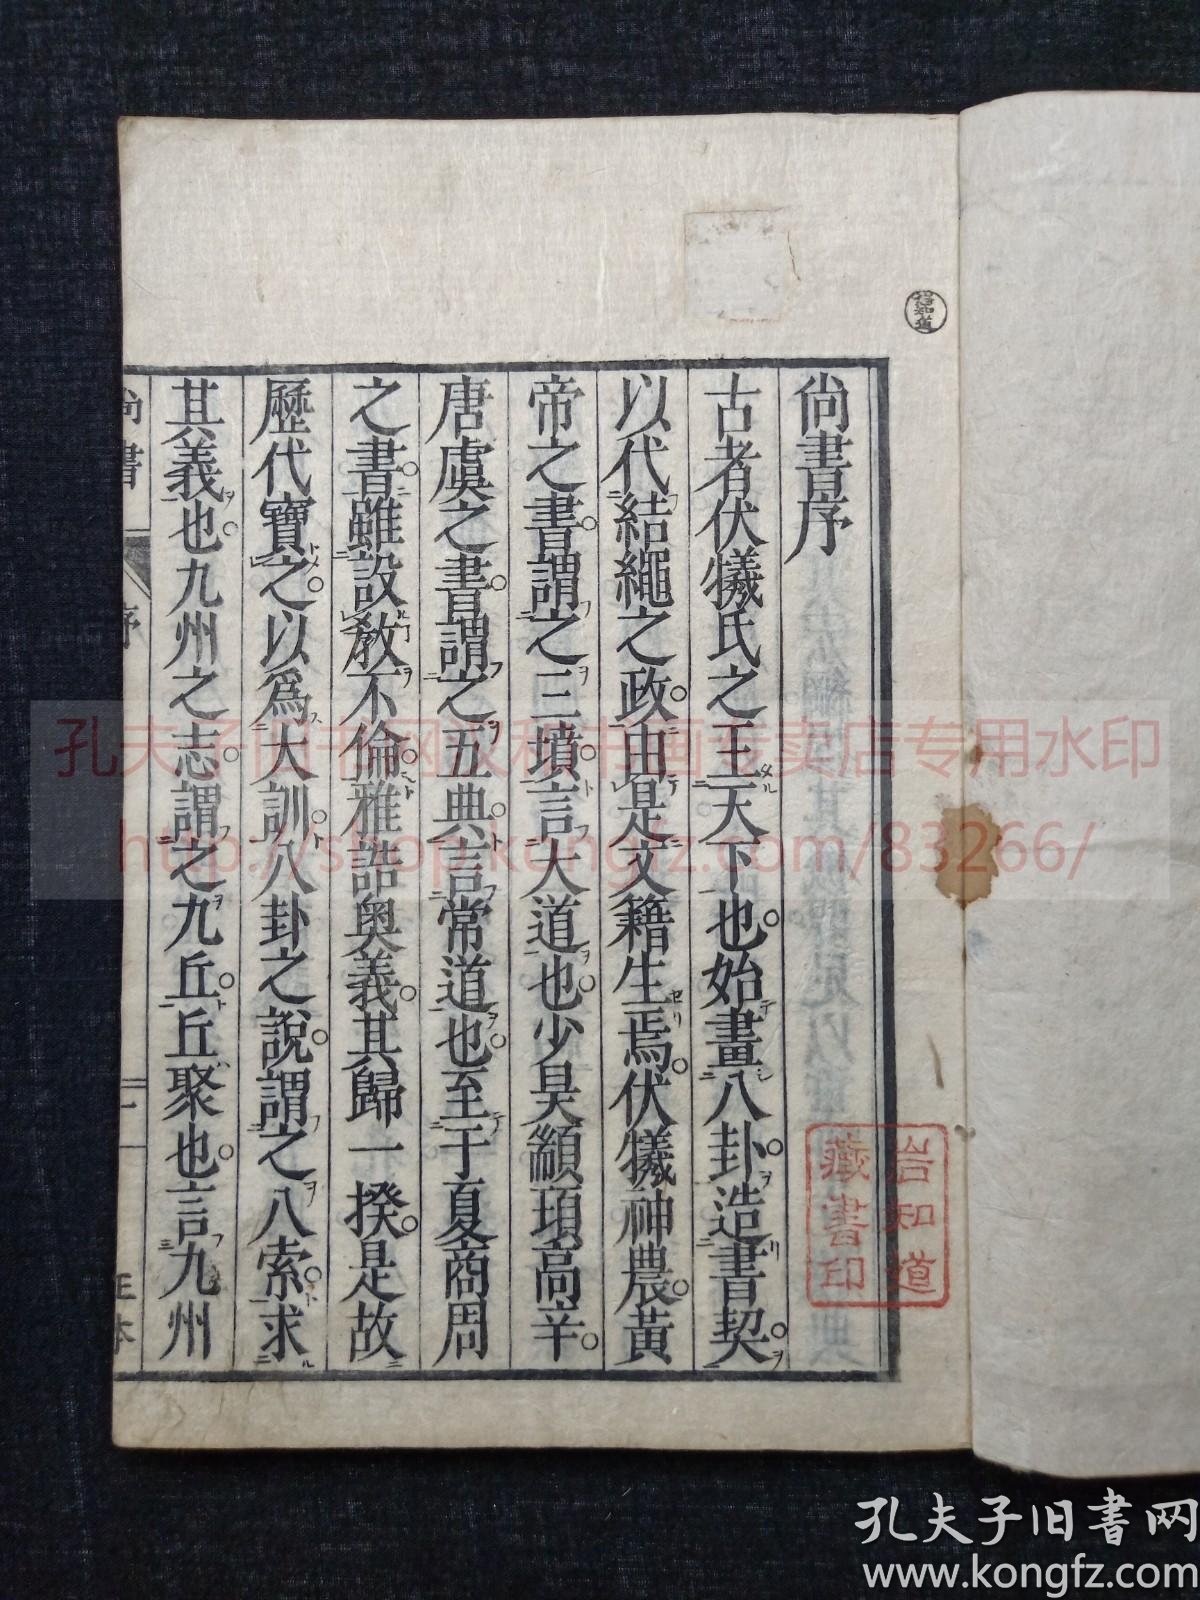 尙書序
古者伏犧氏之王天下也始畫八卦造書契
以代結繩之政由是文籍生焉伏犧神農黃
帝之書謂之三墳言大道也少昊顓頊高辛
唐虞之書謂之五典言常道也至于夏商周
之書雖設敎不倫雅誥奧義其歸一揆是故
歷代寶之以爲大訓八卦之說謂之八索求
其義也九州之志謂之九丘丘聚也言九州
尙書
序
一
正本
岩知道
藏書印
孔夫子旧书网
http://shop.kongfz.com/83266/
专用水印
孔夫子旧书网
www.kongfz.com